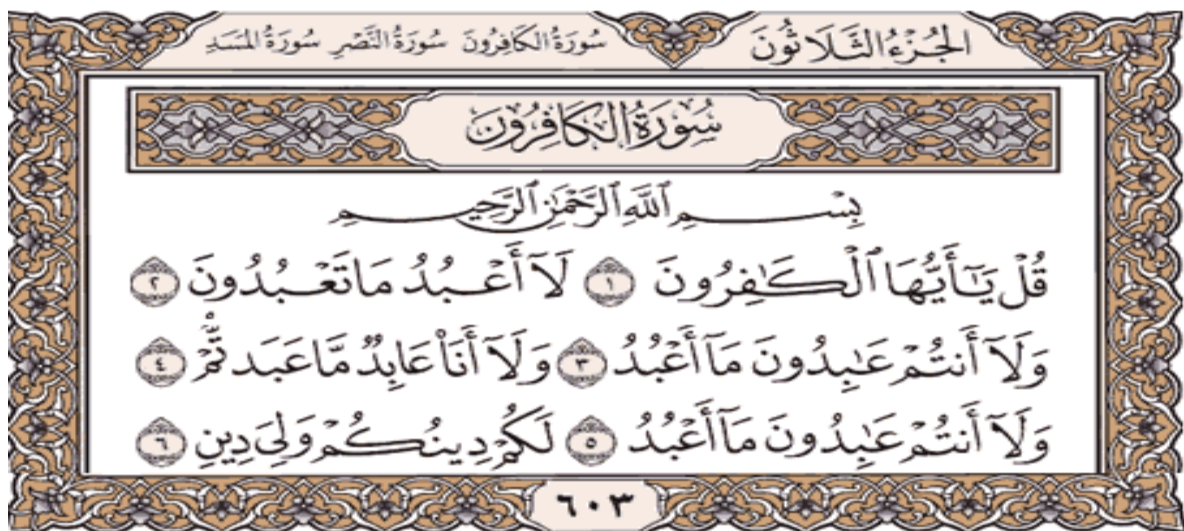 الجُزْءُ الثَّلَاثُونَ سُورَةُ الكَافِرُونَ سُورَةُ النَّصْرِ سُورَةُ المَسَدِ
سُورَةُ الكَافِرُونَ
بِسْمِ ٱللَّهِ ٱلرَّحْمَٰنِ ٱلرَّحِيمِ
قُلْ يَٰٓأَيُّهَا ٱلْكَٰفِرُونَ ١ لَآ أَعْبُدُ مَا تَعْبُدُونَ ٢
وَلَآ أَنتُمْ عَٰبِدُونَ مَآ أَعْبُدُ ٣ وَلَآ أَنَا۠ عَابِدٌ مَّا عَبَدتُّمْ ٤
وَلَآ أَنتُمْ عَٰبِدُونَ مَآ أَعْبُدُ ٥ لَكُمْ دِينُكُمْ وَلِىَ دِينِ ٦
٦٠٣